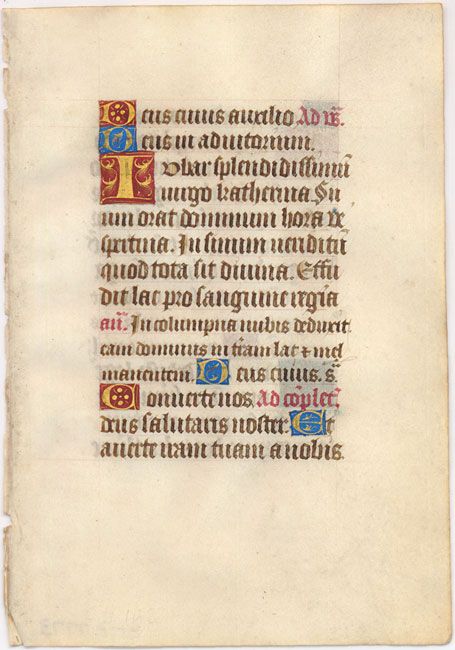 Deus cuius auxilio. Ad vs̄.
Deus in adiutorium.
Iubar splendidissimū
virgo katherina. Su
um orat dominum hora ve
spertina. In sinum venditū
quod tota sit divina. Effu
dit lac pro sanguine regia
añ. In columpna nubis deduxit
eam dominus in trām lac ⁊ mel
manentem. Deus cuius. s̄.
Converte nos. Ad cōplet.
deus salutaris noster. Et
averte iram tuam a nobis.